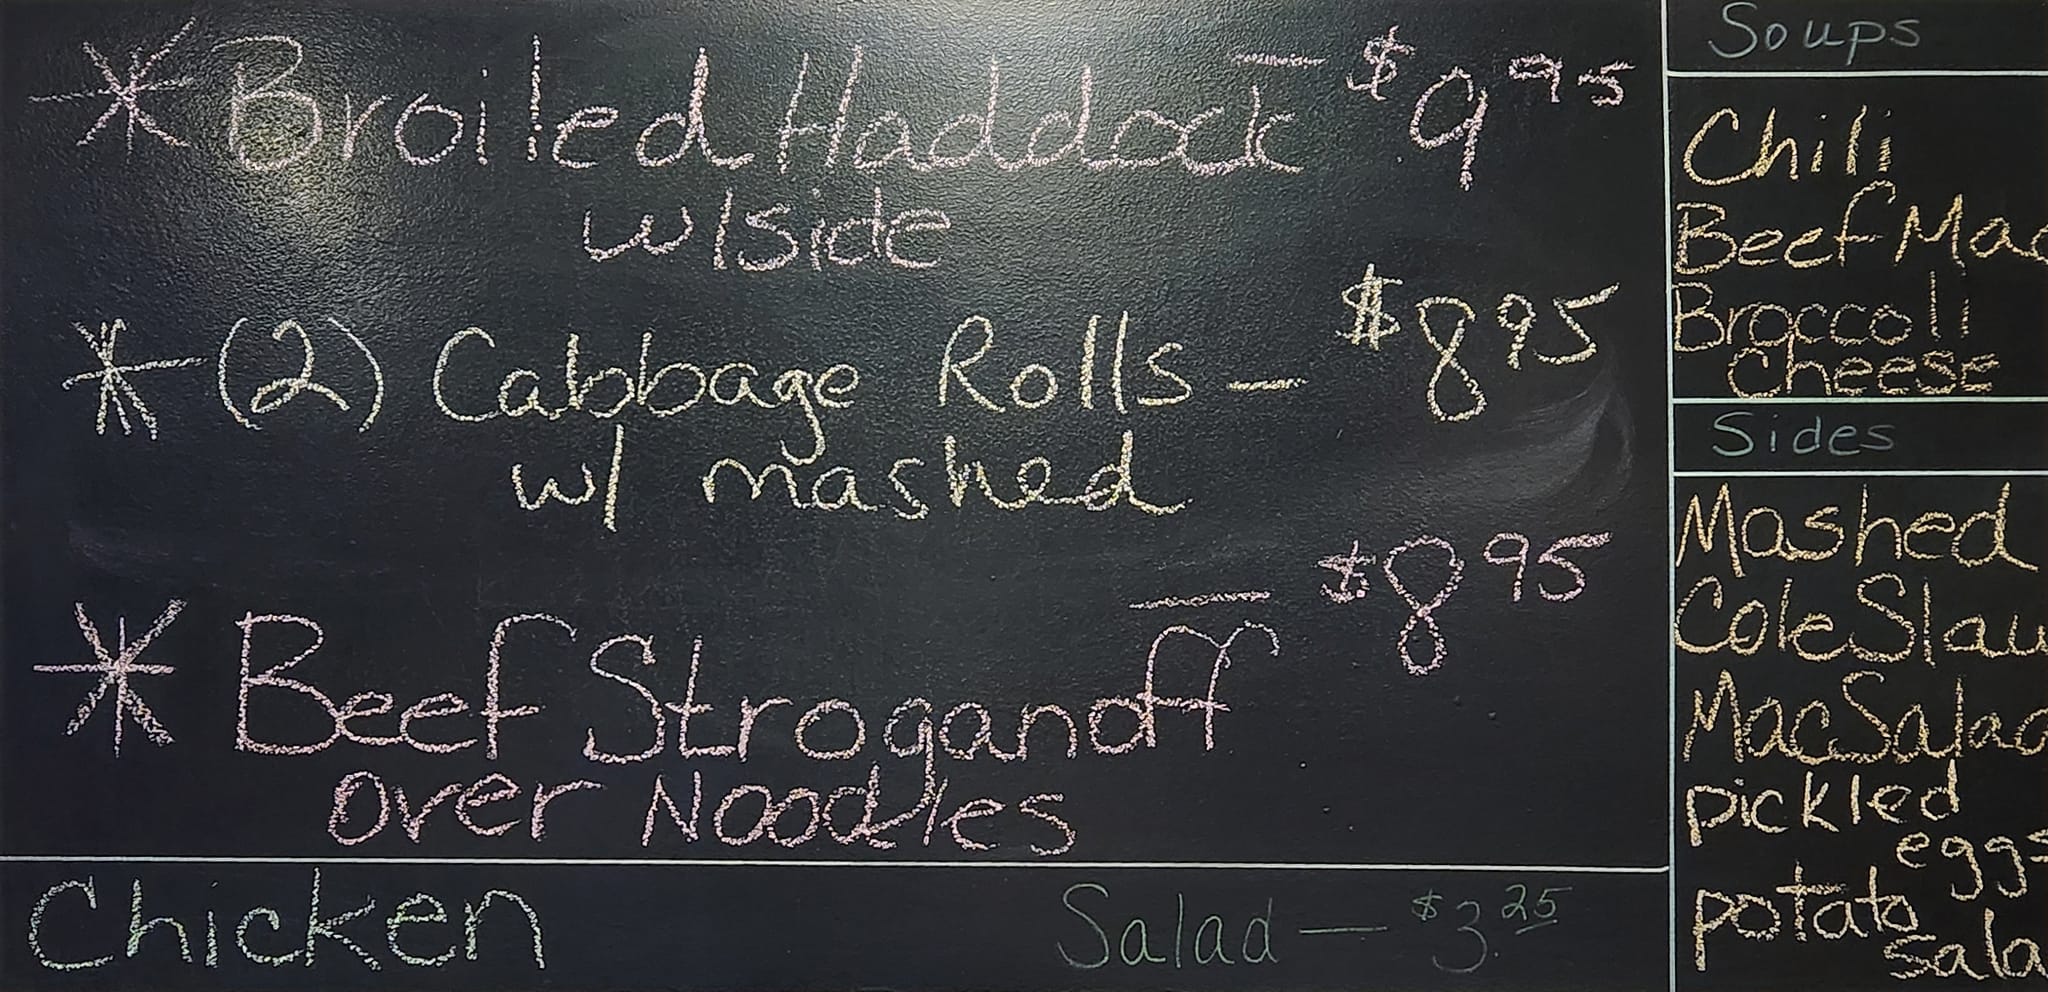 * Broiled Haddock — $9 95
w/side
* (2) Cabbage Rolls — $8 95
w/ mashed
* Beef Stroganoff — $8 95
over Noodles
Chicken Salad — $3.25
Soups
Chili
Beef Mac
Broccoli
Cheese
Sides
Mashed
Cole Slaw
Mac Salad
pickled
eggs
potato
sala